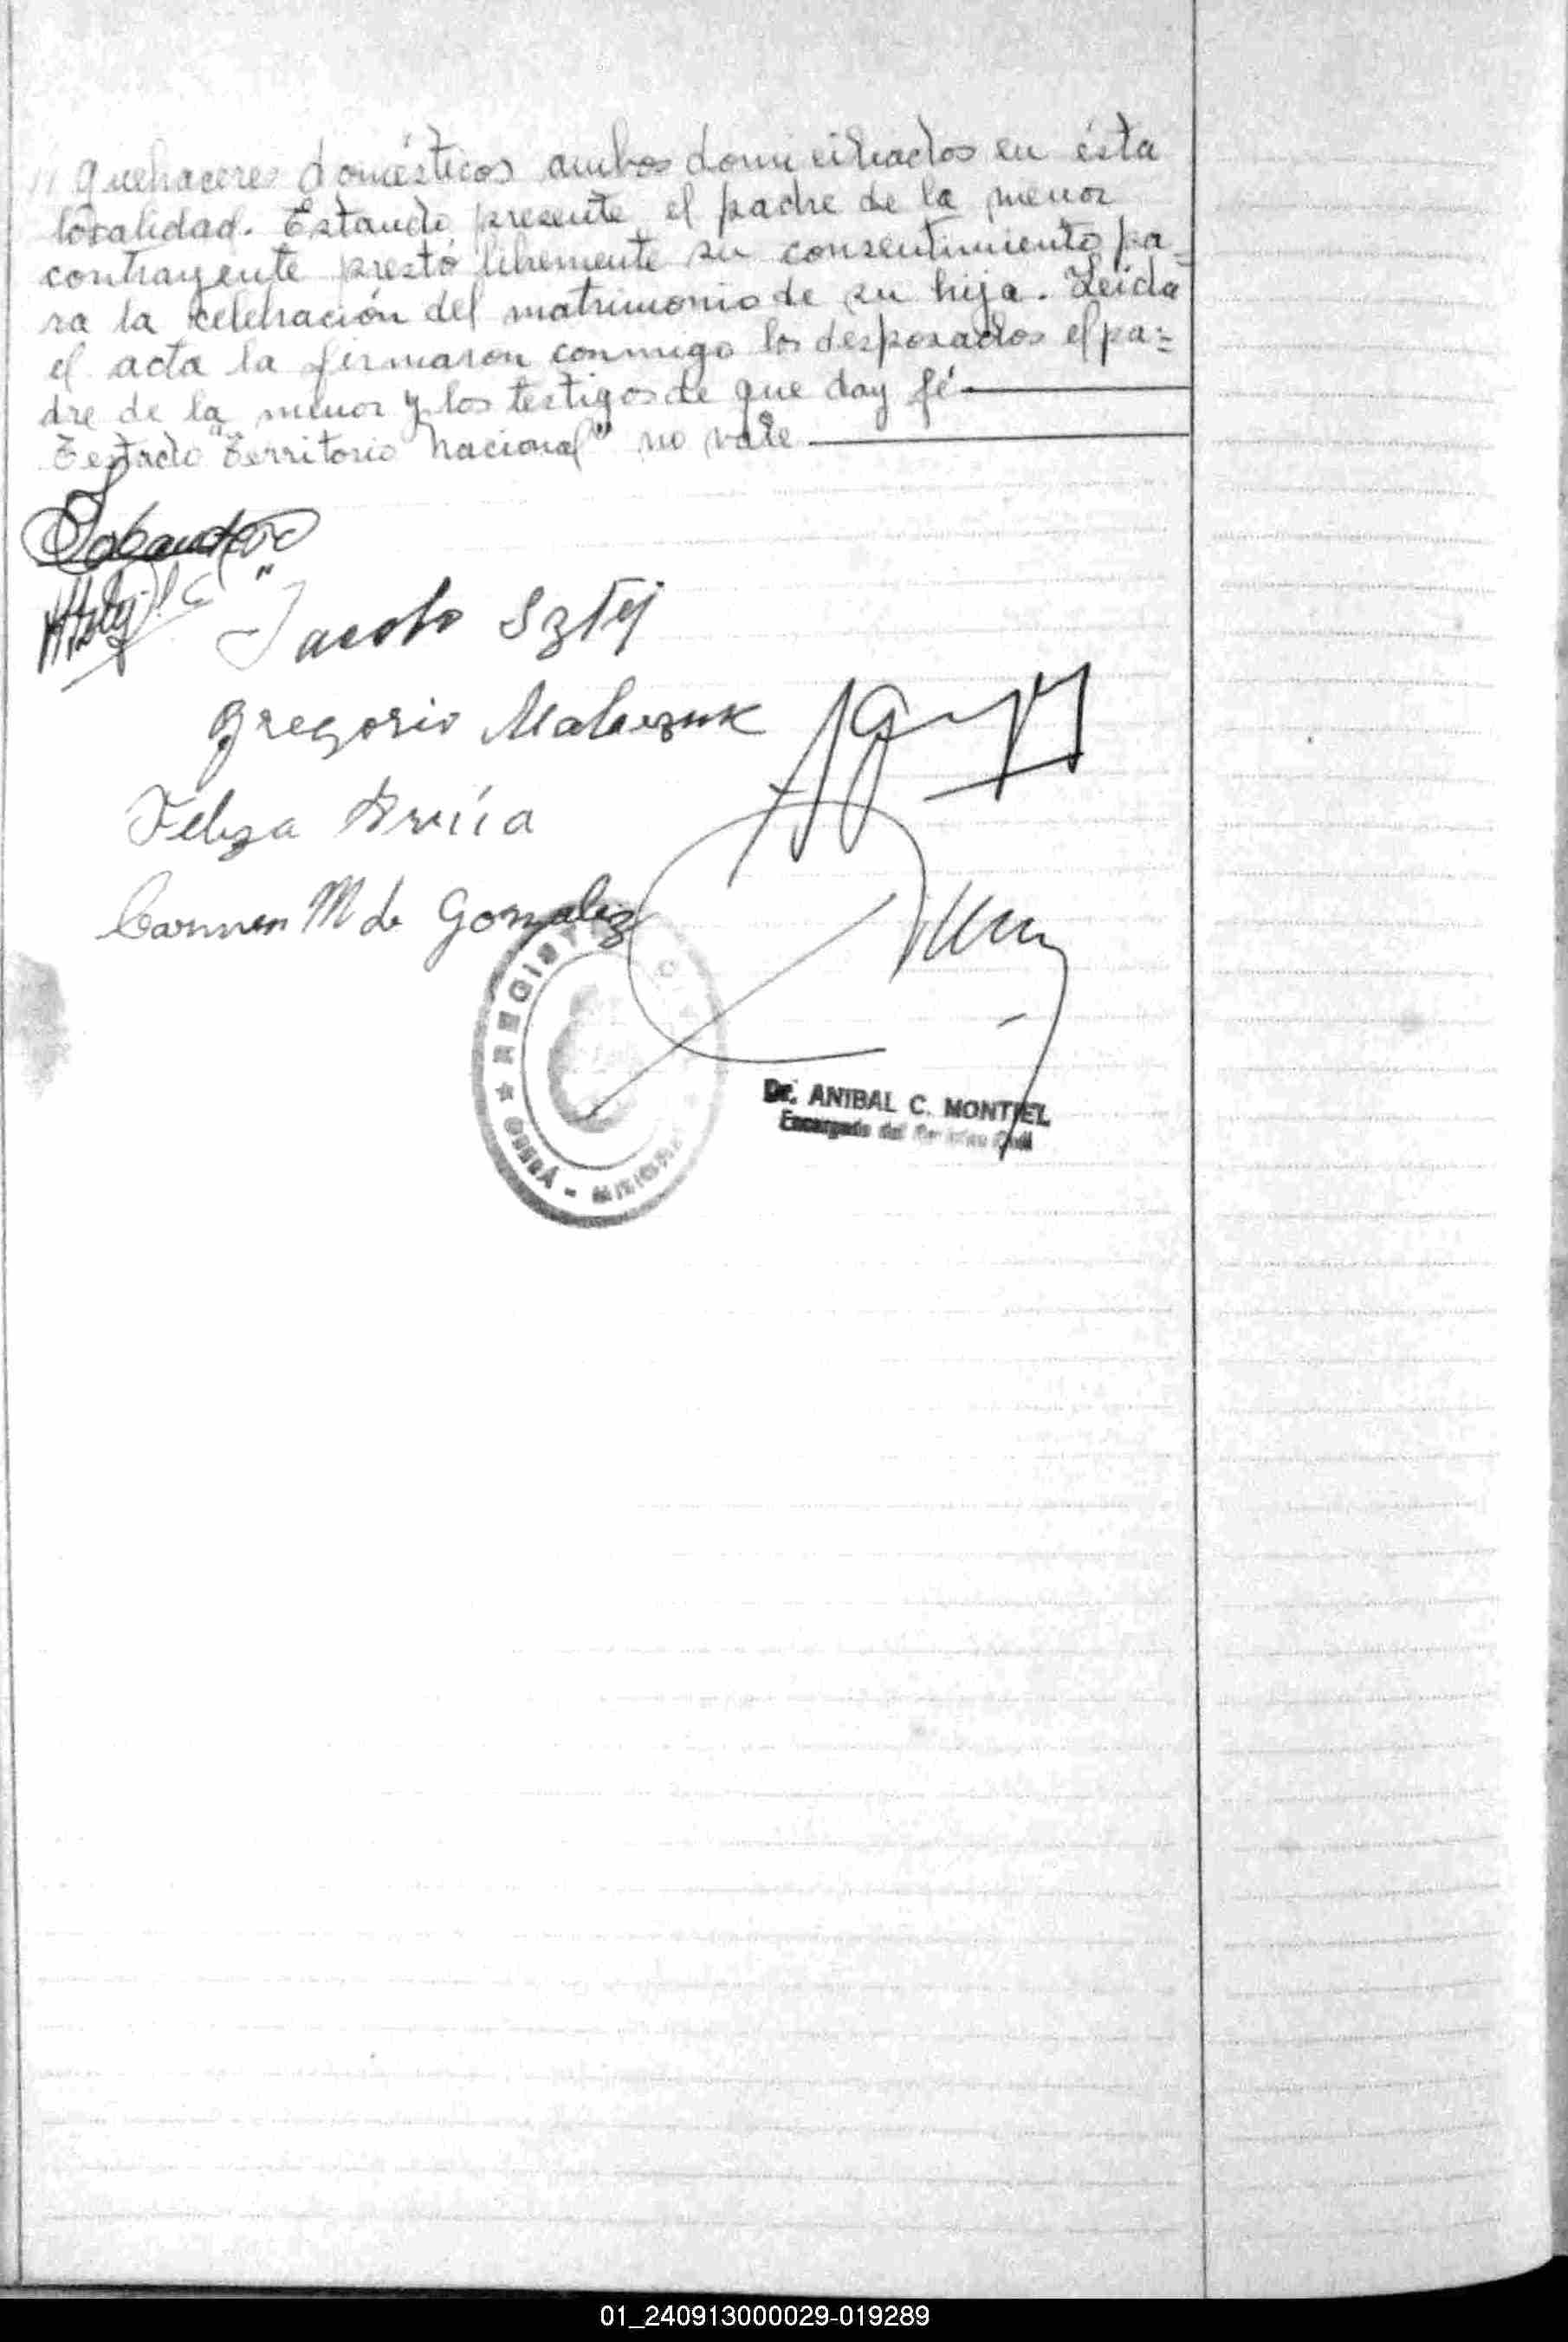 // quehaceres domésticos ambos domiciliados en ésta
localidad. Estando presente el padre de la menor
contrayente prestó libremente su consentimiento pa=
ra la celebración del matrimonio de su hija. Leída
el acta la firmaron conmigo los desposados el pa=
dre de la menor y los testigos de que doy fé
Testado "Territorio Nacional" no vale
Jacobo Sztej
Gregorio
Carmen M de Gonzalez
REGISTRO CIVIL
OBERÁ - MISIONES
Dr. ANIBAL C. MONTIEL
Encargado del Registro Civil
01_240913000029-019289